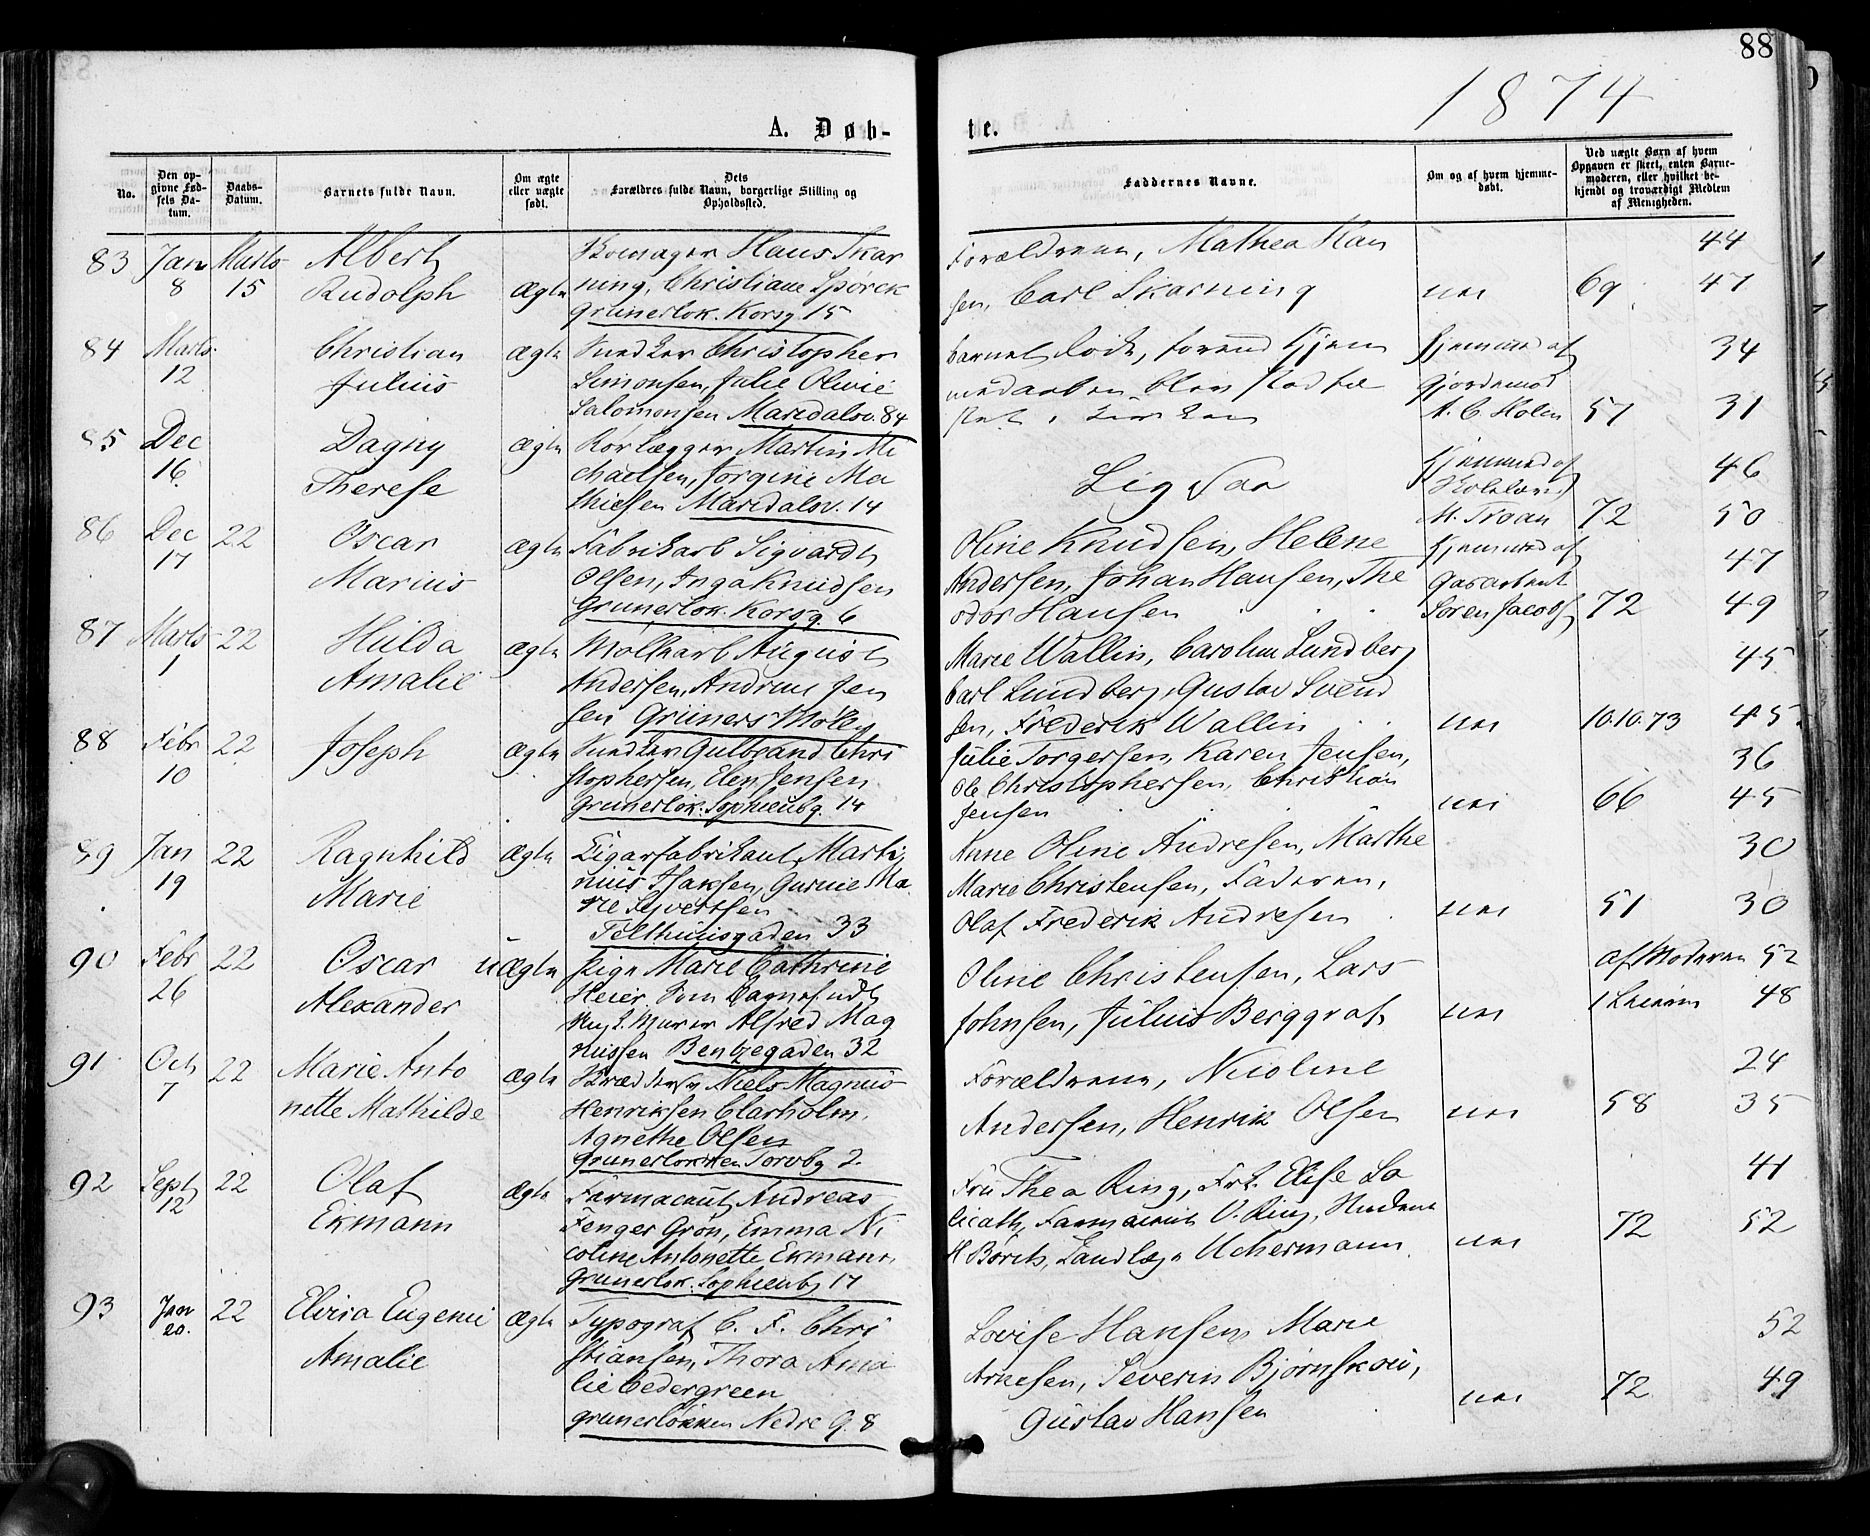 88
1874
A. Døb-
te.
No.
Den op-
givne Fød-
sels Da-
tum.
Daabs-
Datum.
Barnets fulde Navn.
Om ægte
eller uægte
født.
Dets
Forældres fulde Navn, borgerlige Stilling og
Opholdssted.
Faddernes Navne.
Om og af hvem hjemme-
døbt.
Ved uægte Børn af hvem
Opgaven er skeet, enten Barne-
moderen, eller hvilket be-
kjendt og troværdigt Medlem
af Menigheden.
83 Jan 8 Marts 15
Albert
Rudolph
ægte
Skomager Hans Skar
ning, Christiane Spørck
Grünerløk. Korsg. 15
Forældrene, Mathea Han
sen, Carl Skarning
nei
69
44
47
84 Marts 12
Christian
Julius
ægte
Snedker Christopher
Simonsen, Julie Olivie
Salomonsen Maridalsv. 84
barnet døde, forend hjem
medaaben blev stadfæ
stet i kirken
hjemmed af
Gjordemod
A. C. Holm
57
34
31
85 Dec 16
Dagny
Therese
ægte
Rørlægger Martin Mi
chaelsen, Jørgine Ma
thiesen Maridalsv. 14
Ligsaa
hjemmed af
M. Troan
72
46
50
86 Dec 17 22
Oscar
Marius
ægte
Fabrikarb Sigvardt
Olsen, Inga Knudsen
Grunerløk. Korsg. 6
Oline Knudsen, Helene
Andersen, Johan Hansen, The
odor Hansen
hjemmed af
Gasarbeid
Søren Jacobs
72
47
49
87 Marts 1 22
Hilda
Amalie
ægte
Møllearb August
Andersen, Andrine Jen
sen Grüners Mølle
Marie Wallin, Caroline Lundberg
Carl Lundberg, Gustav Svend
sen, Frederik Wallin
nei
10.10.73
45
45
88 Febr 10 22
Joseph
ægte
Snedker Gulbrand Chri
stophersen, Elen Jensen
Grunerløk. Sophienbg. 14
Julie Torgersen, Karen Jensen,
Ole Christophersen, Christian
Jensen
nei
66
36
45
89 Jan 19 22
Ragnhild
Marie
ægte
Cigarfabrikant Marti
nius Isaksen, Gurine Ma
rie Syvertsen
Telthuusgaden 33
Anne Oline Andresen, Marthe
Marie Christensen, Faderen,
Olaf Frederik Andresen
nei
51
30
30
90 Febr 26 22
Oscar
Alexander
uægte
Pige Marie Cathrine
Heier. Som Bagnef udl
Murer Alfred Mag
nussen Bentzegaden 32
Oline Christensen, Lars
Johnsen, Julius Berggraf
nei
af Moderen
52
48
91 Oct 7 22
Marie Anto
nette Mathilde
ægte
Skrædder Niels Magnus
Henriksen Clarholm,
Agnethe Olsen
Grunerløkken Torvbg 2.
Forældrene, Nicoline
Andersen, Henrik Olsen
nei
58
24
35
92 Sept 12 22
Olaf
Ekmann
ægte
Farmaceut Andreas
Fenger Grøn, Emma Ni
coline Antonette Ekmann,
Grunerløk. Sophienbg 17
Fru Thea Ring, Frk. Elise La
licath, Farmaceut O. Ring,
H Børck, Landlæge Uchermann.
nei
72
41
52
93 Jan 20. 22
Elvira Eugenie
Amalie
ægte
Typograf C. F. Chri
stiansen, Thora Ama
lie Cedergreen
Grunerløkken Nedre G. 8
Lovise Hansen, Marie
Arnesen, Severin Bjørnskov,
Gustav Hansen
nei
72
52
49